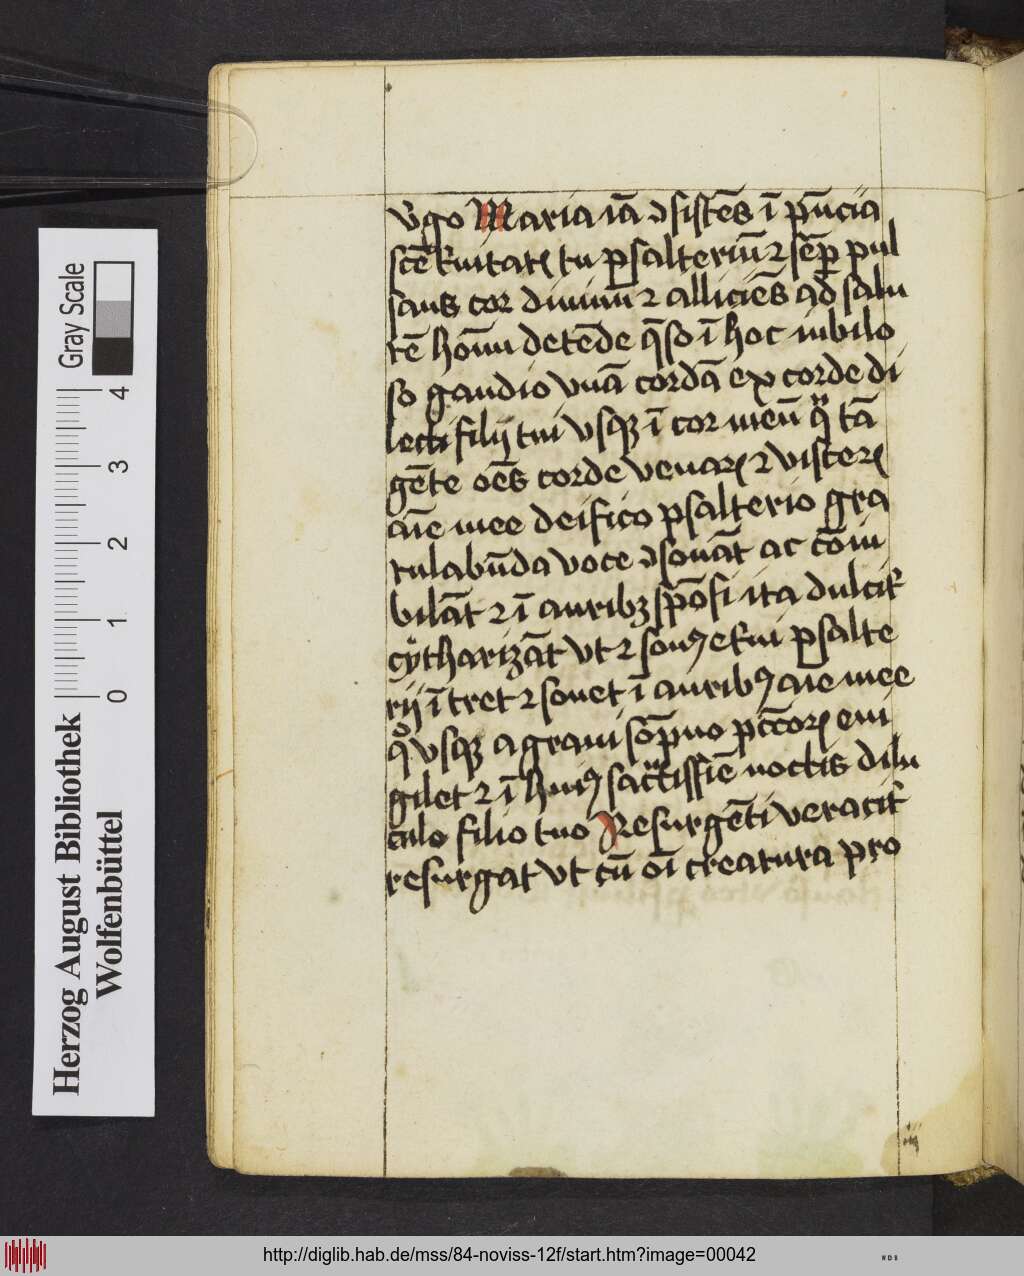 v̾go Maria iā ↄsistēs ī p̄ncia
scē t̾nitatꝭ tu psalteriū ⁊ sēp pul
sans cor diuinū ⁊ alliciēs ad salu
tē hoīnū detēde q̄so ī hoc iubilo
so gaudio vnā cordā ex corde di
lecti filij tui vsqꝫ ī cor meū q̄ tā
gēte oēs corde venarꝭ ⁊ viscerꝭ
aīe mee deifico psalterio gra
tulabūda voce ↄsonāt ac cōiu
bilāt ⁊ ī auribꝫ spōsi ita dulcit̾
cytharizāt vt ⁊ sonꝰ et̾ni psalte
rij ītret ⁊ sonet ī auribꝰ aīe mee
qͦ vsqꝫ a graui sōpno pccōrꝭ eui
gilet ⁊ ī huiꝰ sacͣtissīe noctis dilu
culo filio tuo Resurgēti veracit̾
resurgat vt cū oī creatura pro
Gray Scale
4
3
2
1
0
Herzog August Bibliothek
Wolfenbüttel
http://diglib.hab.de/mss/84-noviss-12f/start.htm?image=00042